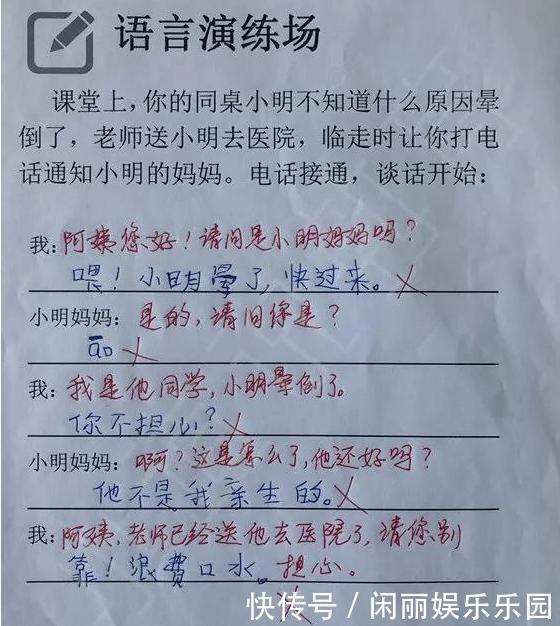 语言演练场
课堂上，你的同桌小明不知道什么原因晕
倒了，老师送小明去医院，临走时让你打电
话通知小明的妈妈。电话接通，谈话开始：
我：阿姨您好！请问是小明妈妈吗？
喂！小明晕了，快过来。
小明妈妈：是的，请问你是？
我：我是他同学，小明晕倒了。
你不担心？
小明妈妈：啊？这是怎么了，他还好吗？
他不是我亲生的。
我：阿姨，老师已经送他去医院了，请您别
靠！浪费口水。担心。
快传号 / 闲丽娱乐乐园